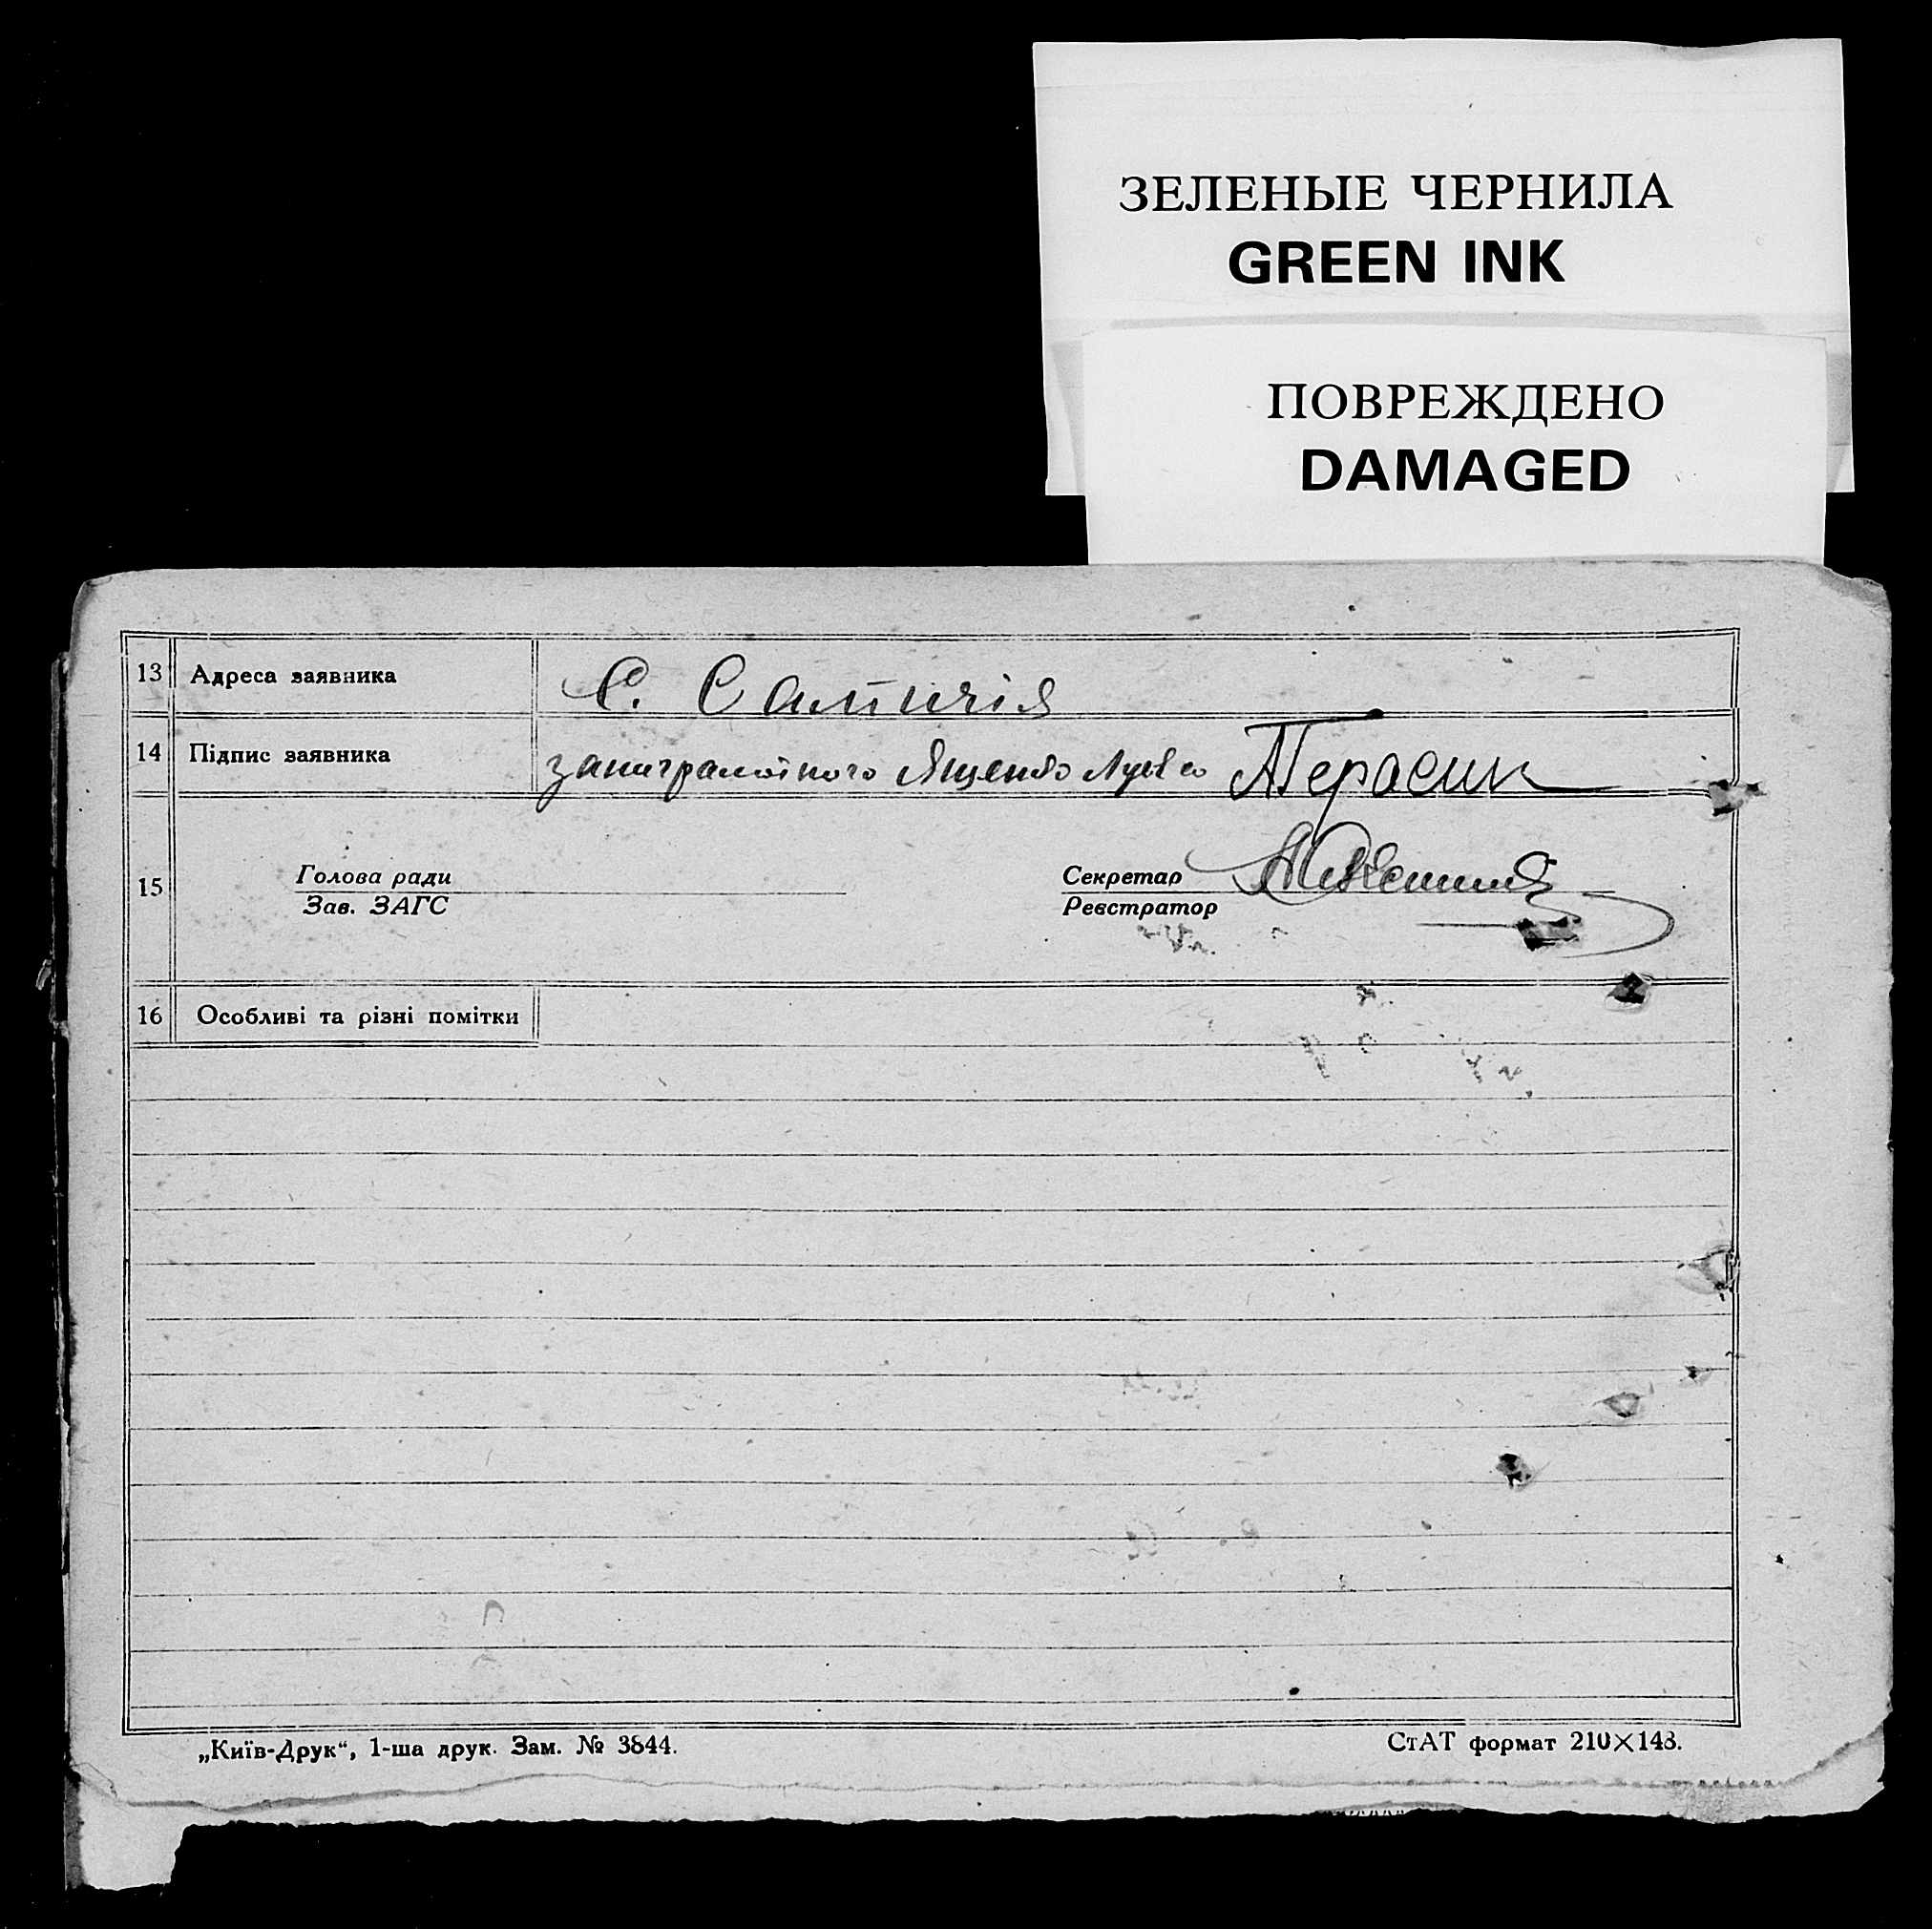 ЗЕЛЕНЫЕ ЧЕРНИЛА
GREEN INK
ПОВРЕЖДЕНО
DAMAGED
13 Адреса заявника С.
14 Підпис заявника Ященко Герасим
15 Голова ради Секретар
Зав. ЗАГС Реєстратор
16 Особливі та різні помітки
„Київ-Друк“, 1-ша друк. Зам. № 3844. СтАТ формат 210×148.